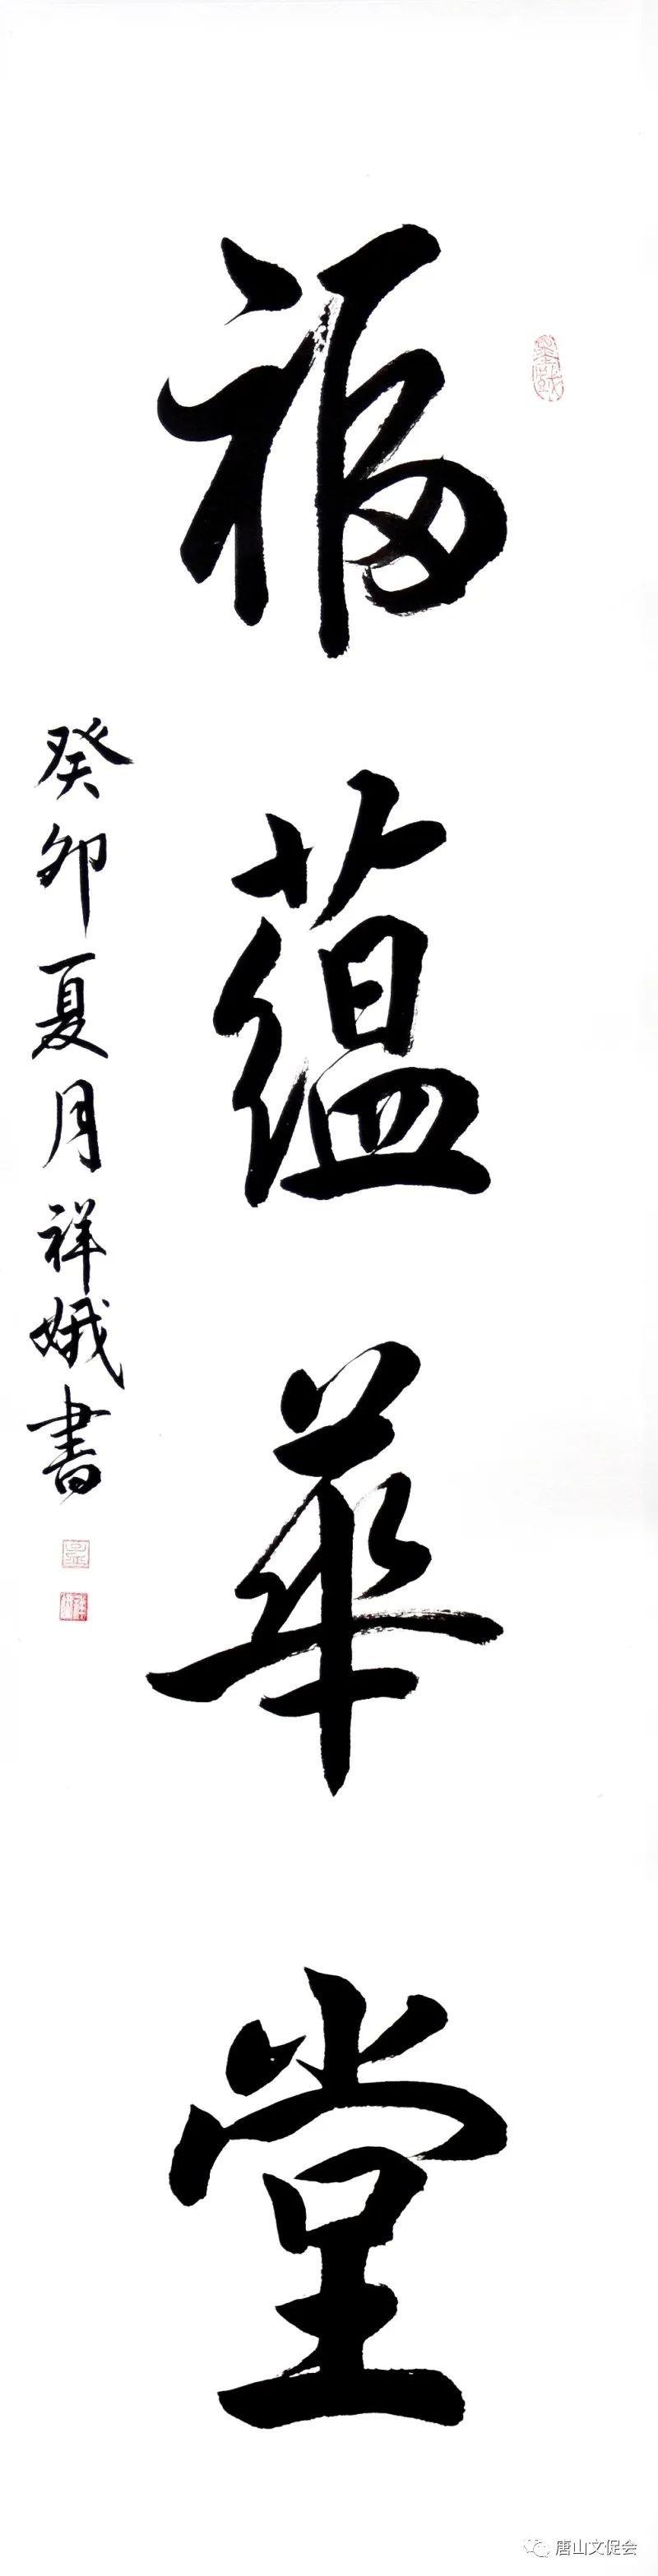 福蕴華堂
癸卯夏月祥娥書
唐山文促会